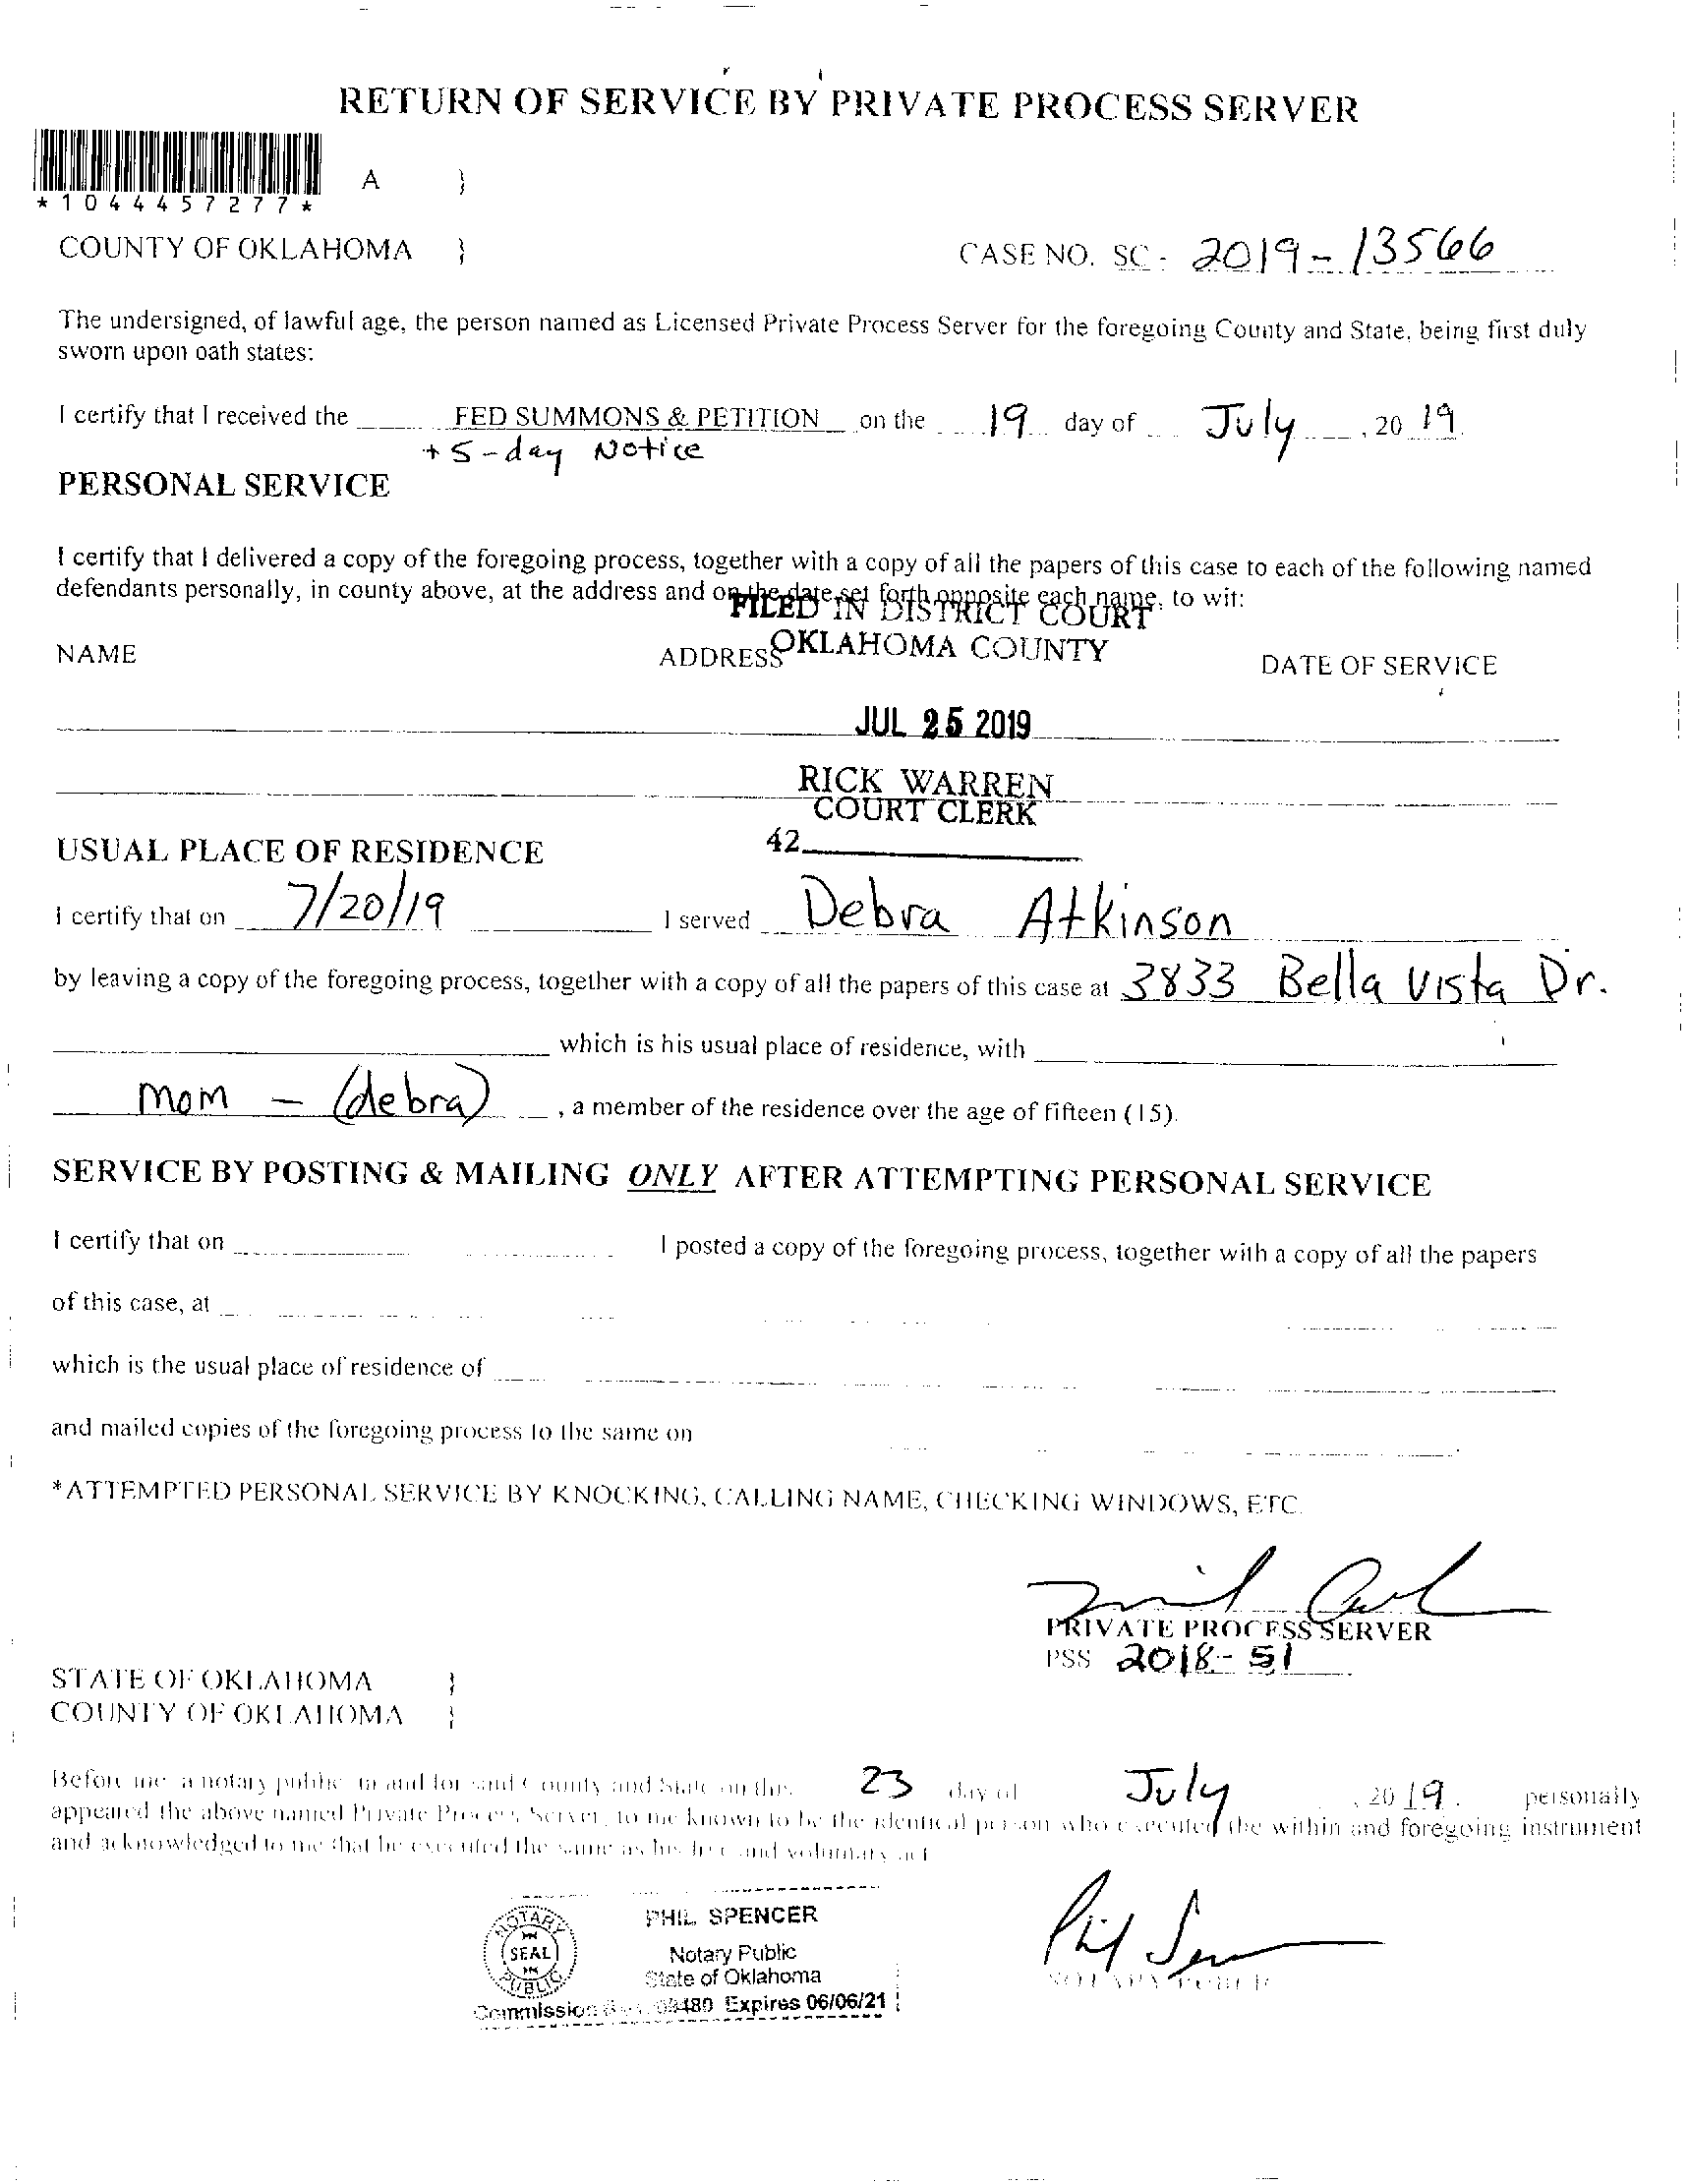 RETURN OF SERVICE BY PRIVATE PROCESS SERVER
A }
*1044457277*
COUNTY OF OKLAHOMA } CASE NO. SC- 2019-13566
The undersigned, of lawful age, the person named as Licensed Private Process Server for the foregoing County and State, being first duly
sworn upon oath states:
I certify that I received the FED SUMMONS & PETITION on the 19 day of July, 20 19.
+ 5-day Notice
PERSONAL SERVICE
I certify that I delivered a copy of the foregoing process, together with a copy of all the papers of this case to each of the following named
defendants personally, in county above, at the address and on the date set forth opposite each name, to wit:
FILED IN DISTRICT COURT
OKLAHOMA COUNTY
NAME ADDRESS DATE OF SERVICE
JUL 25 2019
RICK WARREN
COURT CLERK
42
USUAL PLACE OF RESIDENCE
I certify that on 7/20/19 I served Debra Atkinson
by leaving a copy of the foregoing process, together with a copy of all the papers of this case at 3833 Bella Vista Dr.
which is his usual place of residence, with
mom - (debra), a member of the residence over the age of fifteen (15).
SERVICE BY POSTING & MAILING ONLY AFTER ATTEMPTING PERSONAL SERVICE
I certify that on I posted a copy of the foregoing process, together with a copy of all the papers
of this case, at
which is the usual place of residence of
and mailed copies of the foregoing process to the same on
*ATTEMPTED PERSONAL SERVICE BY KNOCKING, CALLING NAME, CHECKING WINDOWS, ETC.
PRIVATE PROCESS SERVER
PSS 2018-51
STATE OF OKLAHOMA }
COUNTY OF OKLAHOMA }
Before me a notary public in and for said County and State on this 23 day of July, 20 19. personally
appeared the above named Private Process Server, to me known to be the identical person who executed the within and foregoing instrument
and acknowledged to me that he executed the same as his free and voluntary act
NOTARY PUBLIC SEAL
PHIL SPENCER
Notary Public
State of Oklahoma
Commission Expires 06/06/21
NOTARY PUBLIC